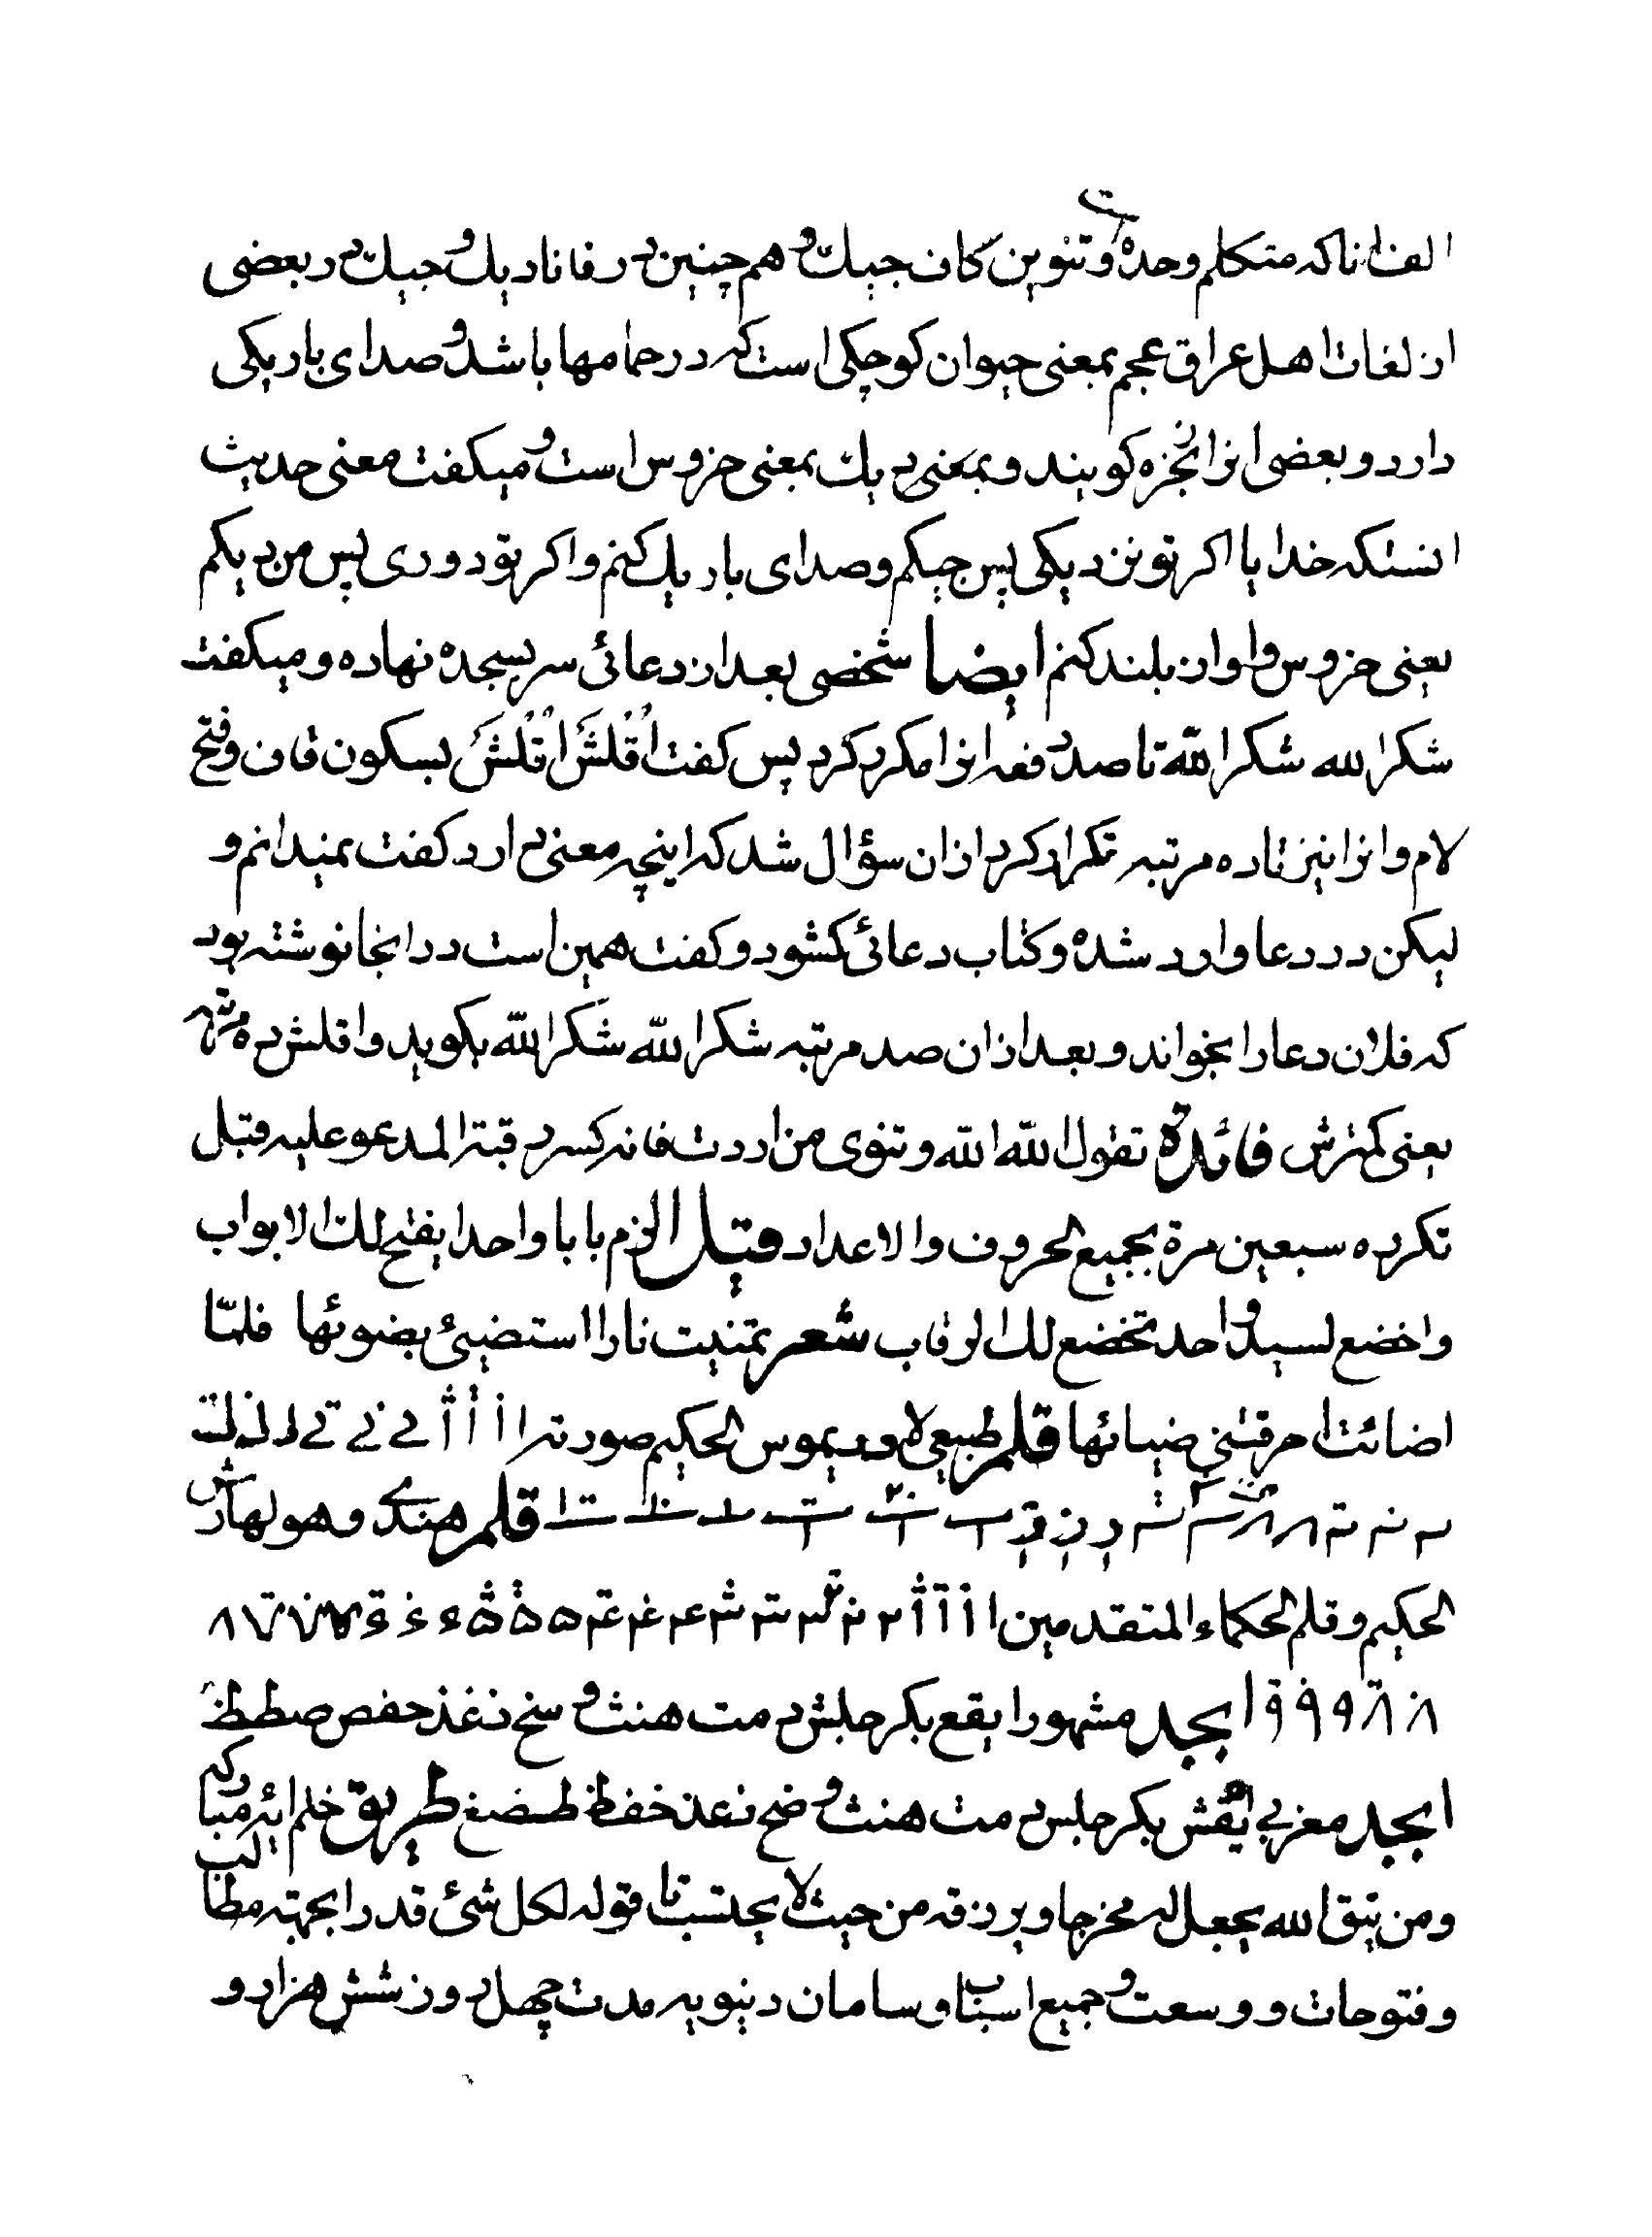 الف انا که متکلم وحده و تنوین کاف جیك و هم چنین در فانا دیك و جیك در بعضی
از لغات اهل عراق عجم بمعنی حیوان کوچکی است که در حمامها باشد و صدای باریکی
دارد و بعضی انرا کویند و بمعنی دیك بمعنی خروس است و میکفت معنی حدیث
انستکه خدایا اکر تو نزدیکی پس جیکم و صدای باریك کنم و اکر تو دوری پس من دیکم
یعنی خروس و اواز بلند کنم ایضا شخصی بعد از دعائی سر بسجده نهاده و میکفت
شکرا لله شکرا لله تا صد دفعه انرا مکرر کرد پس کفت اُقْلُشَ اُقْلُشَ بسکون قاف و فتح
لام و انرا نیز تا ده مرتبه تکرار کرد از ان سؤال شد که اینچه معنی دارد کفت نمیدانم و
لیکن در دعا وارد شده و کتاب دعائی کشود و کفت همین است در انجا نوشته بود
که فلان دعا را بخواند و بعد از ان صد مرتبه شکرا لله شکرا لله بکوید و اقلش ده مرتبه
یعنی کمترش فائدة تقول الله الله و تنوی من اردت فانه کسر رقبة المدعو علیه قبل
تکرره سبعین مرة بجمیع الحروف والاعداد قیل الزم بابا واحدا یفتح لك الابواب
واخضع لسید واحد تخضع لك الرقاب شعر تمنیت نارا استضیئ بضوئها فلمّا
اضائت احرقتنی ضیائها قلم طبیعی لاوریموس الحکیم صورته ا
قلم هندی وهو لهارش
الحکیم و قلم الحکماء المتقدمین ا
ابجد مشهور ایقغ بکر جلش دمت هنث وسخ زعذ حفص صطظ
ابجد مغربی ایقش بکر جلس دمت هنث وضخ زعذ حفظ طصغ طریق ختم ایه مبارکه
ومن یتق الله یجعل له مخرجا ویرزقه من حیث لا یحتسب تا قوله لکل شئ قدرا بجهته مطالب
و فتوحات و وسعت و جمیع اسباب و سامان دنیویه مدت چهل روز شش هزار و